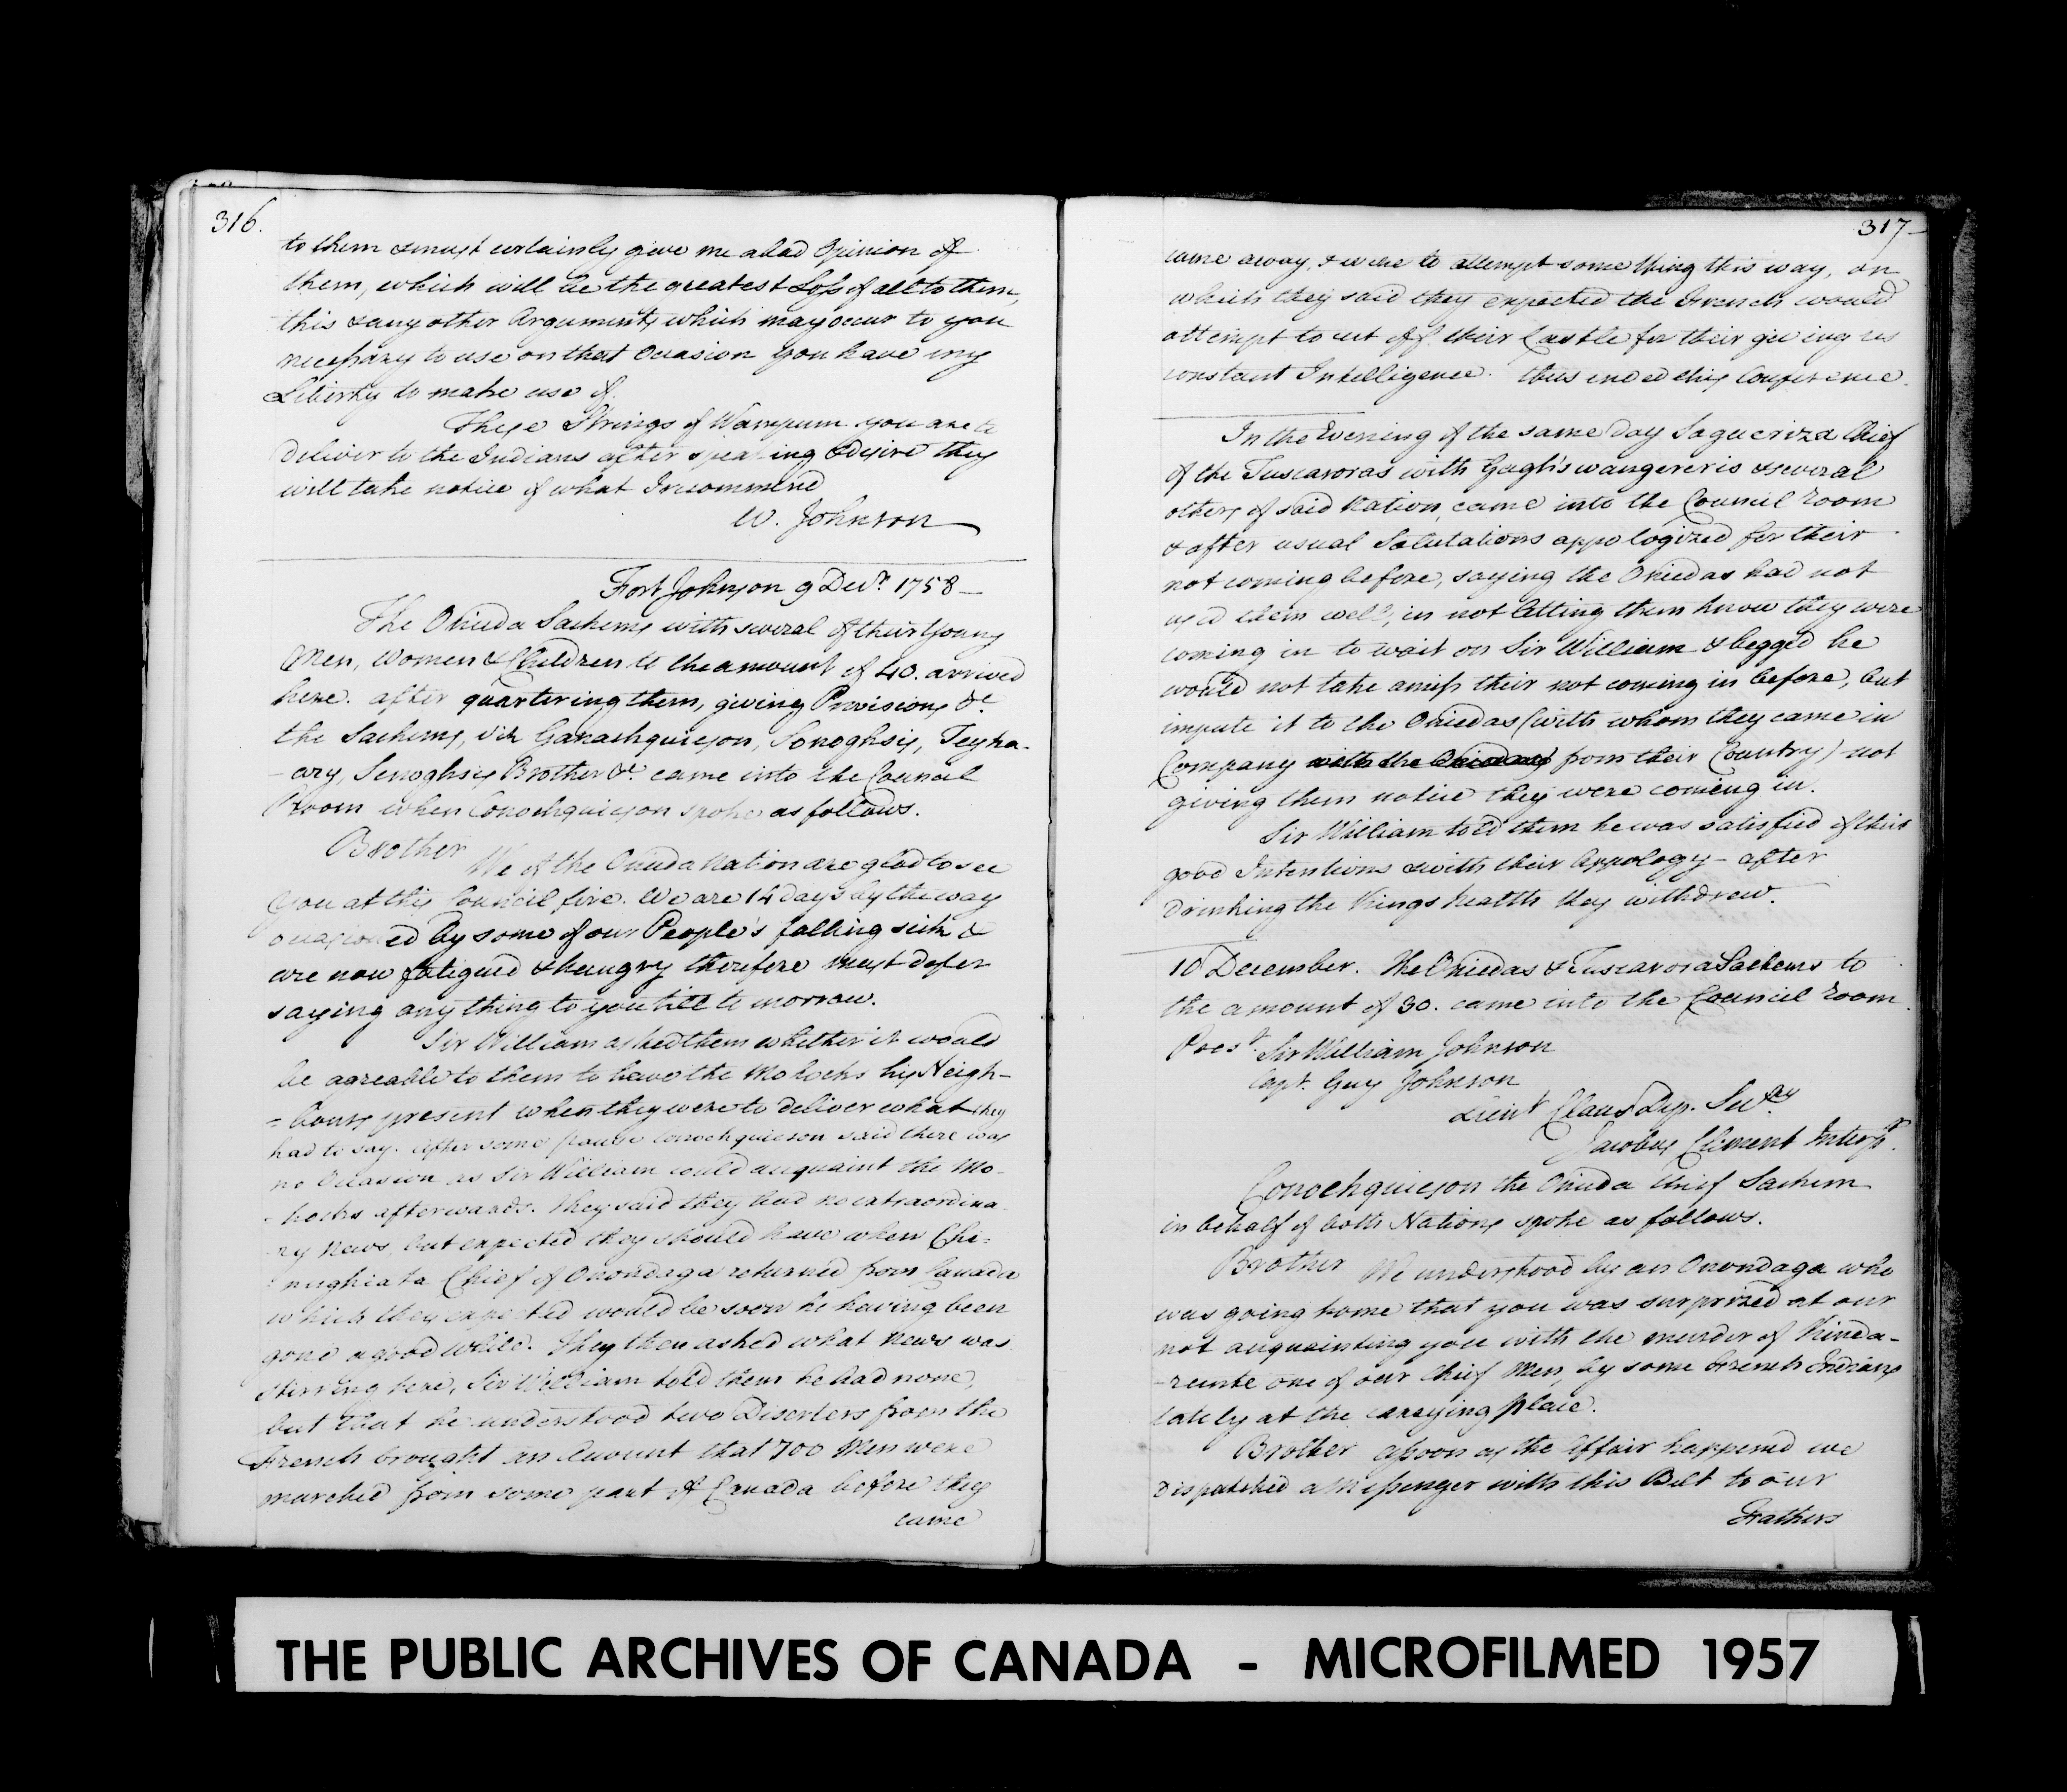 316.
to them & must certainly give me a bad Opinion of
them, which will be the greatest Loss of all to them,
this & any other Arguments which may occur to you
necessary to use on that Occasion you have my
Liberty to make use of.
These Strings of Wampum you are to
deliver to the Indians after speaking & desire they
will take notice of what I recommend
W. Johnson
Fort Johnson 9 Decr. 1758
The Oneida Sachems with several of their Young
Men, Women & Children to the amount of 40. arrived
here. after quartering them, giving Provisions &c
the Sachems, viz Ganachquieson, Sonoghsis, Teyha-
-ary, Senoghsis Brother &c. came into the Council
Room when Conochquieson spoke as follows.
Brother
We of the Oneida Nation are glad to see
You at this Council fire. We are 14 days by the way
occasioned by some of our People's falling sick &
are now fatigued & hungry therefore must defer
saying any thing to you till to morrow.
Sir William asked them whether it would
be agreable to them to have the Mohocks his Neigh-
-bours present when they were to deliver what they
had to say. After some pause Conochquieson said there was
no Occasion as Sir William could acquaint the Mo-
-hocks afterwards. They said they had no extraordina-
-ry News, but expected they should have when Che-
-nughiata Chief of Onondaga returned from Canada
which they expected would be soon he having been
gone a good while. They then asked what News was
stirring here, Sir William told them he had none,
but that he understood two Deserters from the
French brought an Account that 700 Men were
marched from some part of Canada before they
came
317
came away, & were to attempt some thing this way, on
which they said they expected the French would
attempt to cut off their Castle for their giving us
constant Intelligence. thus ended this Conference.
In the Evening of the same day Sagueriza Chief
of the Tuscaroras with Gaghswangereris & several
others of said Nation, came into the Council Room
& after usual Salutations appologized for their
not coming before, saying the Oniedas had not
used them well, in not letting them know they were
coming in to wait on Sir William & begged he
would not take amiss their not coming in before, but
impute it to the Oniedas (with whom they came in
Company with the Oniedas from their Country) not
giving them notice they were comeing in.
Sir William told them he was satisfied of their
good Intentions & with their Appology - after
Drinking the Kings health they withdrew.
10 December. The Oniedas & Tuscarora Sachems to
the amount of 30. came into the Council Room.
Prest. Sir William Johnson
Capt. Guy Johnson
Lieut Claus Dep. Secry
Jacobus Clement Interpr.
Conochquieson the Oneida Chief Sachem
in behalf of both Nations spoke as follows.
Brother We understood by an Onondaga who
was going home that you was surprized at our
not acquainting you with the murder of Kinda-
-runte one of our Chief Men, by some French Indians
lately at the carrying place.
Brother assoon as the Affair happened we
Dispatched a Messenger with this Belt to our
Fathers
THE PUBLIC ARCHIVES OF CANADA - MICROFILMED 1957